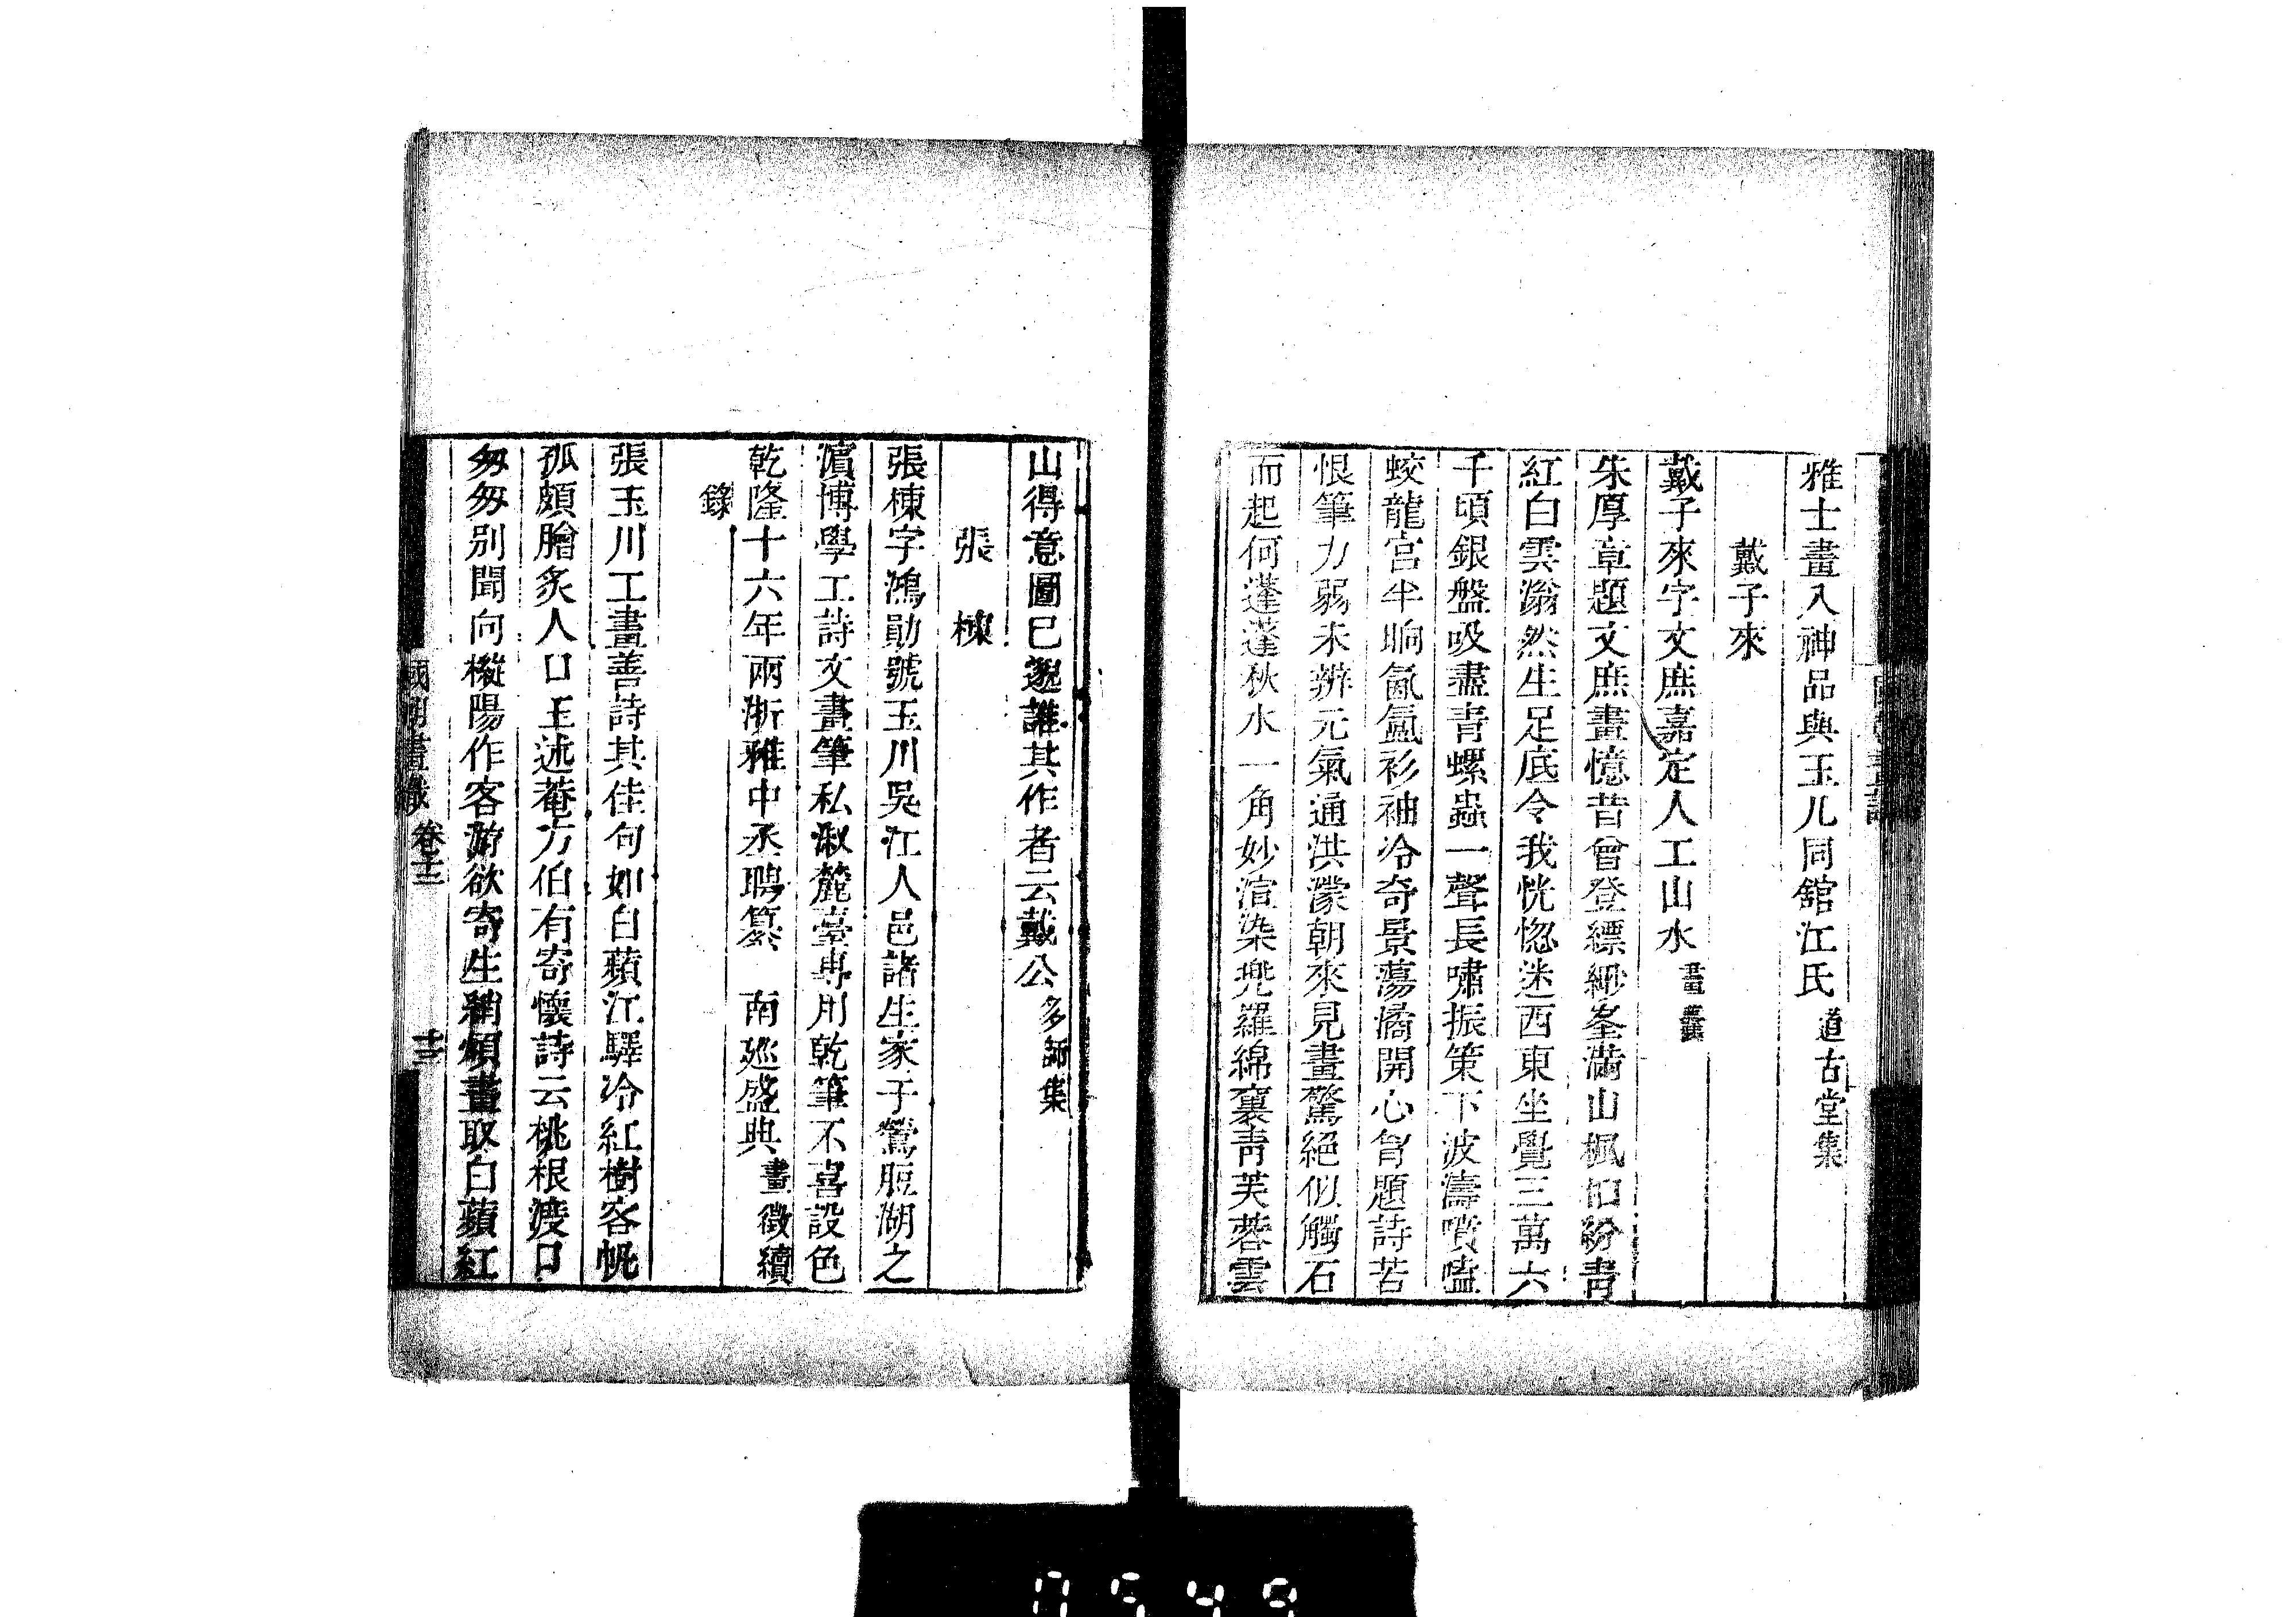 雅士畫入神品與玉几同舘江氏道古堂集
戴子來
戴子來字文庶嘉定人工山水畫識
朱厚章題文庶畫憶昔曾登縹緲峯滿山楓桕紛靑
紅白雲滃然生足底令我恍惚迷西東坐覺三萬六
千頃銀盤吸盡靑螺蟲一聲長嘯振策下波濤噴嗑
蛟龍宮半晌氤氳衫袖冷奇景蕩潏開心胷題詩苦
恨筆力弱未辨元氣通洪濛朝來見畫驚絕似觸石
而起何蓬蓬秋水一角妙渲染兠羅綿裹靑芙蓉雲
山得意圖已邈誰其作者云戴公多師集
張棟
張棟字鴻勛號玉川吳江人邑諸生家于鶯脰湖之
濵博學工詩文畫筆私淑麓臺專用乾筆不喜設色
乾隆十六年兩浙雅中丞聘纂 南廵盛典畫徵續
錄
張玉川工畫善詩其佳句如白蘋江驛冷紅樹客帆
孤頗膾炙人口王述菴方伯有寄懷詩云桃根渡口
匆匆別聞向樅陽作客游欲寄生綃煩畫取白蘋紅
國朝畫識 卷十二 十三
0549